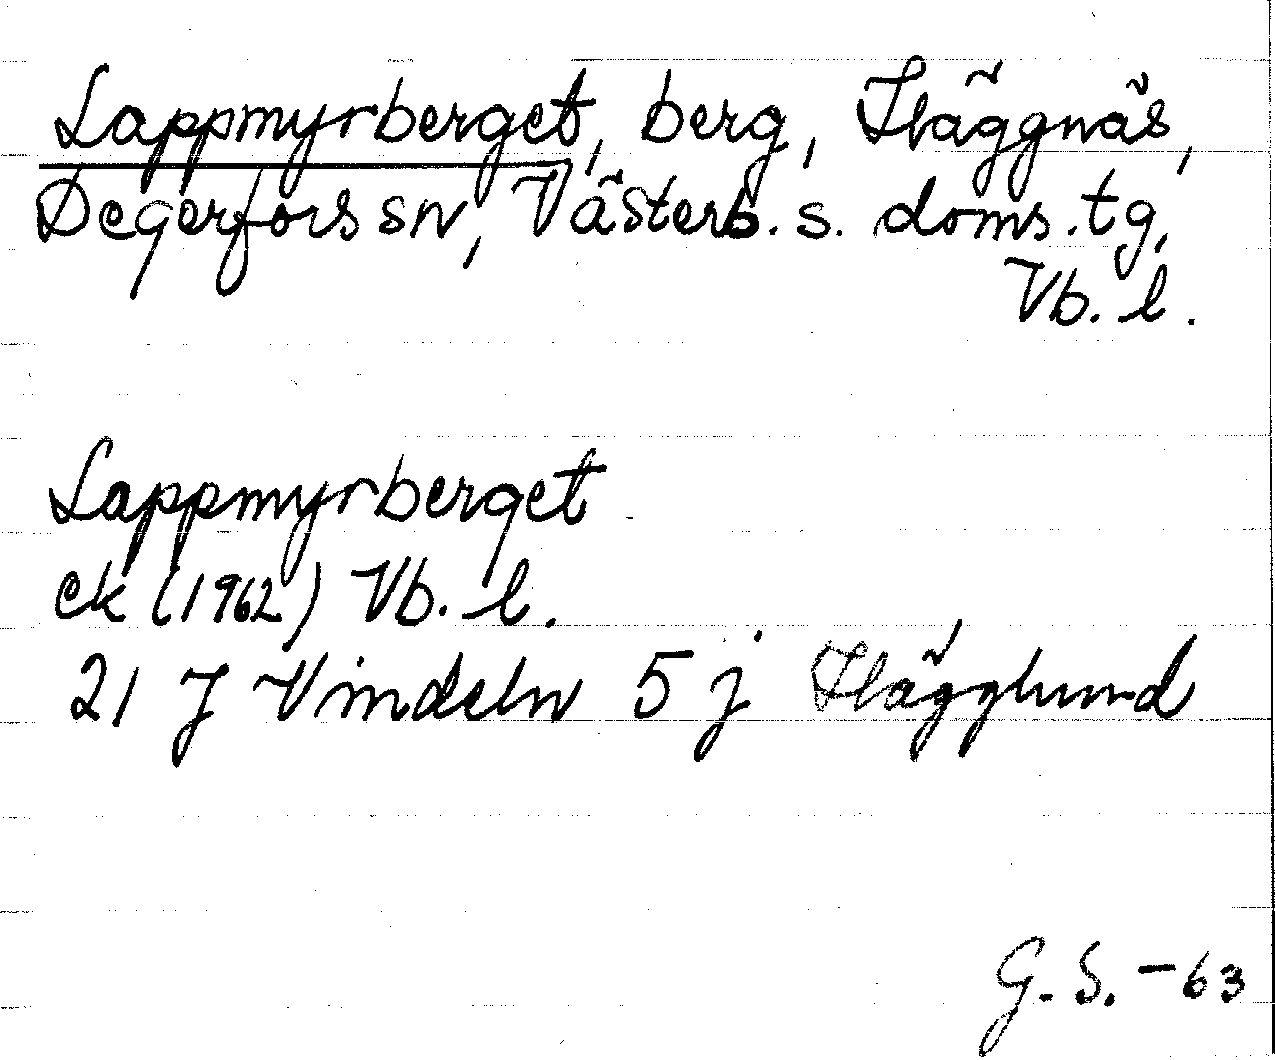 Lappmyrberget, berg, Häggnäs,
Degerfors sn, Västerb. s. doms. tg,
Vb. l.
Lappmyrberget
ek (1962) Vb. l.
21 J Vindeln 5 j Hägglund
G. S. - 63